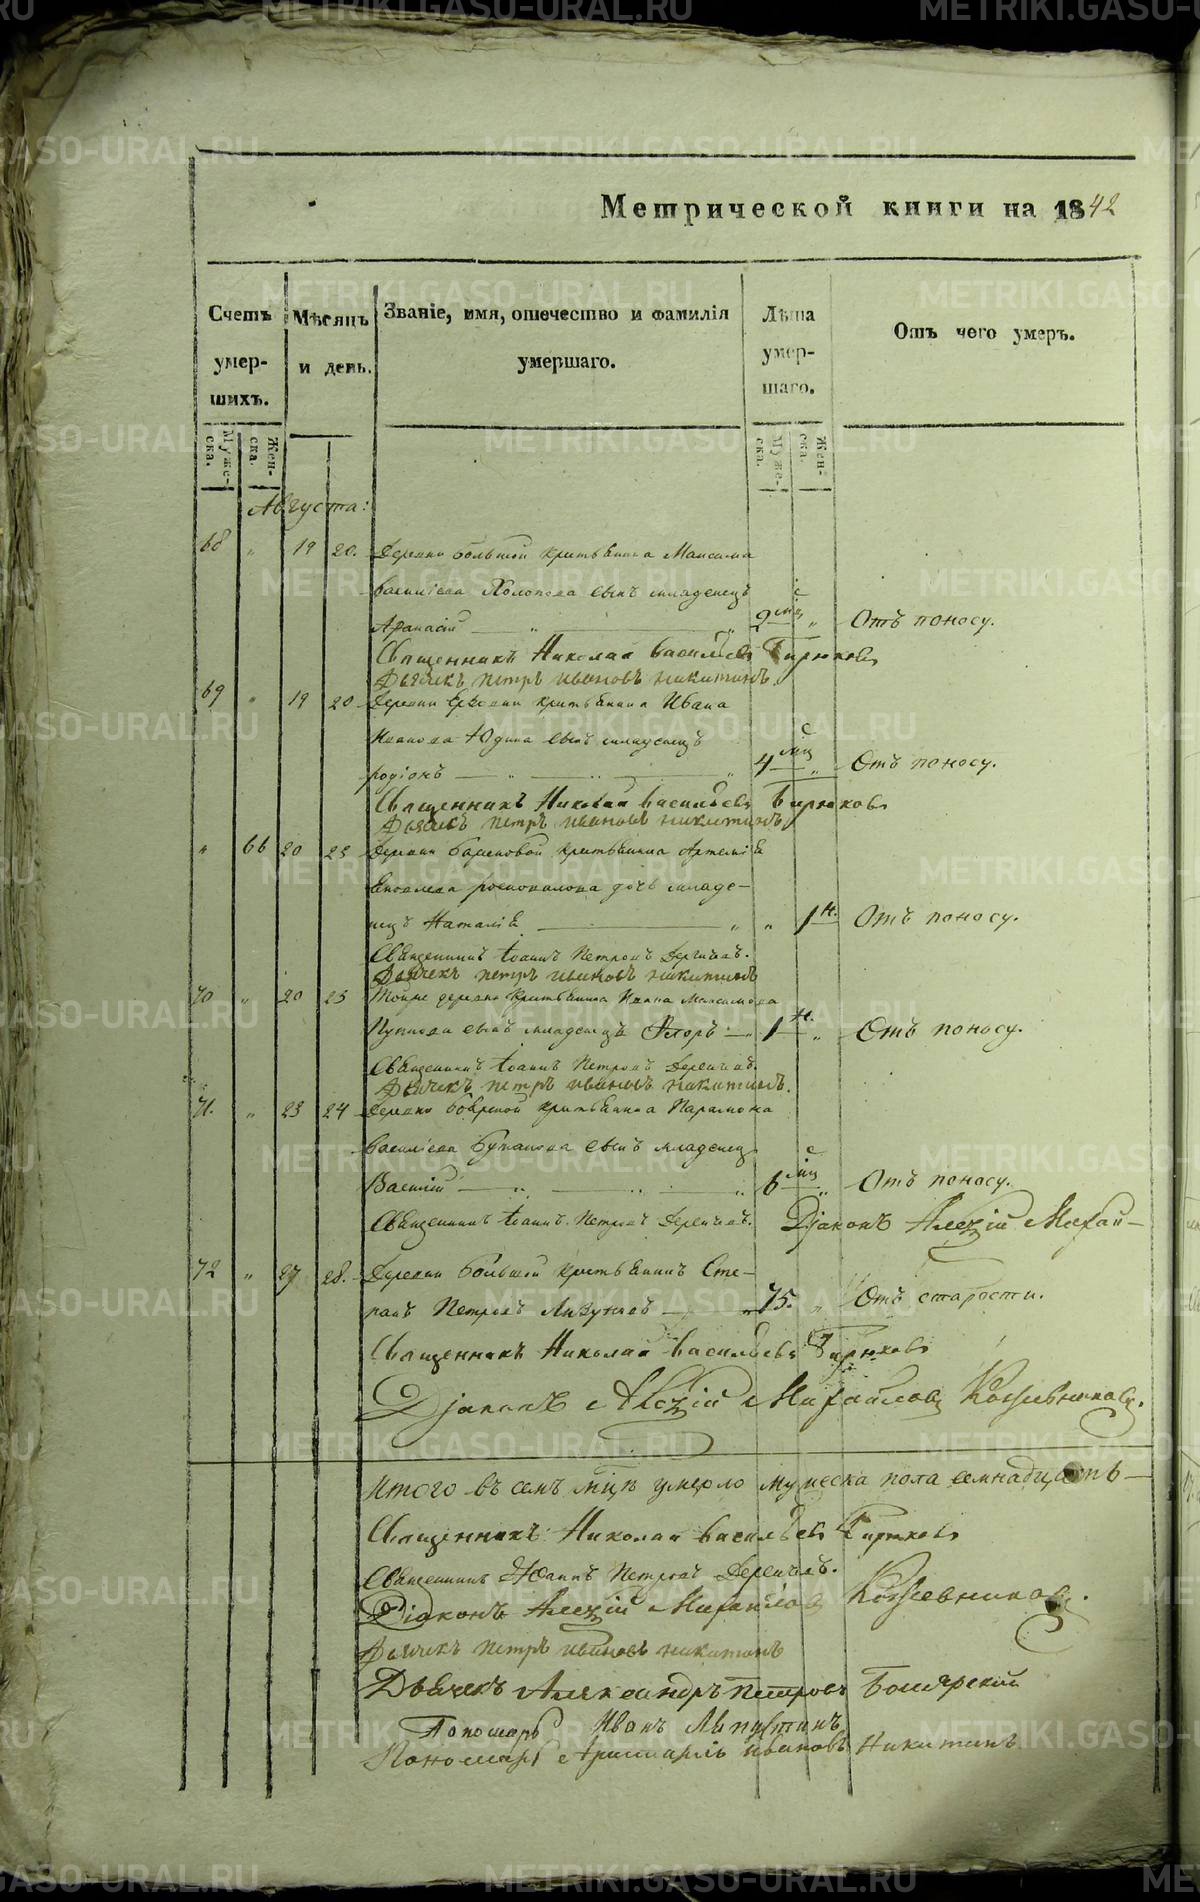 Метрической книги на 1842
Счетъ умер- шихъ.
Мѣсяцъ и день.
Званіе, имя, отечество и фамилія умершаго.
Лѣта умер- шаго.
Отъ чего умеръ.
Муже- ска.
Жен- ска.
Муже- ска.
Жен- ска.
Августа:
68 „ 19 20. Деревни большой крестьянина Максима
Васильева Холопова сынъ младенецъ
Афанасій 2 мца „ Отъ поносу.
Священникъ Николай Васильевъ Бирюковъ
Дьячекъ Петръ Ивановъ Никитинъ.
69 „ 19 20 Деревни крестьянина Ивана
Иванова Юдина сынъ младенецъ
Родіонъ 4 мца „ Отъ поносу.
Священникъ Николай Васильевъ Бирюковъ
Дьячекъ Петръ Ивановъ Никитинъ
„ 66 20 23 Деревни крестьянина Артемія
Яковлева дочь младе-
нецъ Наталія „ „ 1 н. Отъ поносу.
Священникъ Іоаннъ Петровъ
Дьячекъ Петръ Ивановъ Никитинъ
70 „ 20 23 Тойже деревни крестьянина Ивана Максимова
сынъ младенецъ Флоръ 1 н. „ Отъ поносу.
Священникъ Іоаннъ Петровъ
Дьячекъ Петръ Ивановъ Никитинъ.
71. „ 23 24 Деревни крестьянина Парамона
Васильева сынъ младенецъ
Василій 6 мца „ Отъ поносу.
Священникъ Іоаннъ Петровъ Діаконъ Алексій Михай-
72 „ 27 28. Деревни большой крестьянинъ Сте-
панъ Петровъ 75. „ Отъ старости.
Священникъ Николай Васильевъ Бирюковъ
Діаконъ Алексій Михайловъ Кожевниковъ.
Итого въ семъ мцѣ умерло мужеска пола семнадцать
Священникъ Николай Васильевъ Бирюковъ
Священникъ Іоаннъ Петровъ
Діаконъ Алексій Михайловъ Кожевниковъ.
Дьячекъ Петръ Ивановъ Никитинъ
Дьячекъ Александръ Петровъ
Пономарь Иванъ Лапустинъ
Пономарь Ивановъ Никитинъ
METRIKI.GASO-URAL.RU